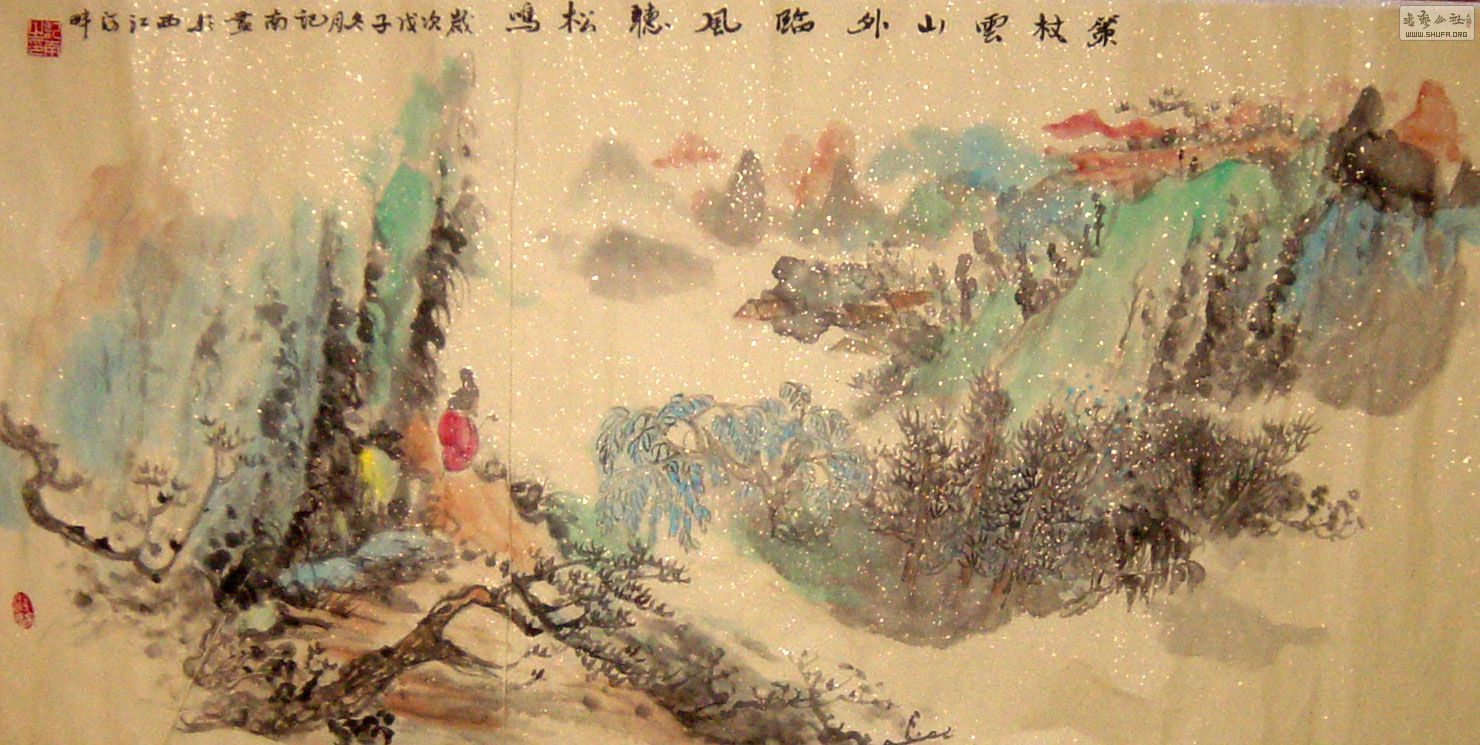 策杖雲山外臨風聽松鳴歲次戊子冬月記南畫於西江河畔
书艺公社
WWW.SHUFA.ORG